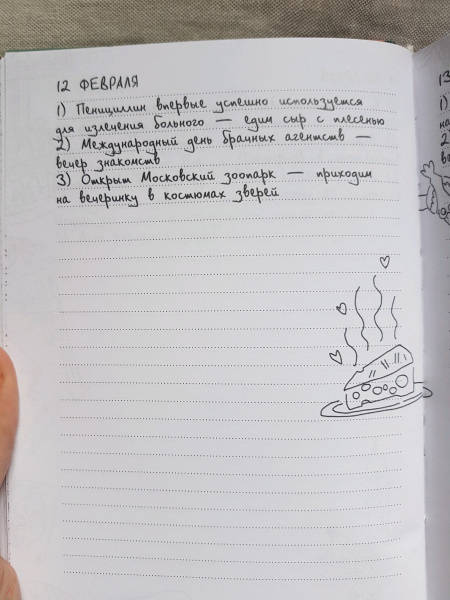 12 ФЕВРАЛЯ
1) Пенициллин впервые успешно используется
для излечения больного — едим сыр с плесенью
2) Международный день брачных агентств —
вечер знакомств
3) Открыт Московский зоопарк — приходим
на вечеринку в костюмах зверей
13
1)
на
2
во